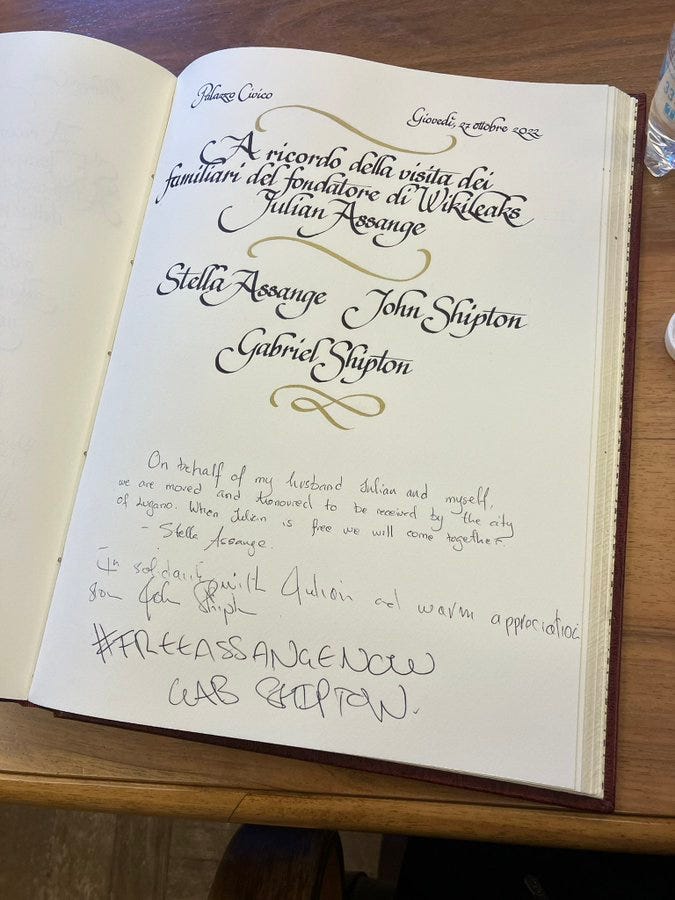 Palazzo Civico
Giovedì, 27 ottobre 2022
A ricordo della visita dei
familiari del fondatore di Wikileaks
Julian Assange
Stella Assange John Shipton
Gabriel Shipton
On behalf of my husband Julian and myself,
we are moved and honoured to be received by the city
of Lugano. When Julian is free we will come together.
- Stella Assange.
In solidarity with Julian ad warm appreciation
John Shipton
#FREEASSANGENOW
GAB SHIPTON.